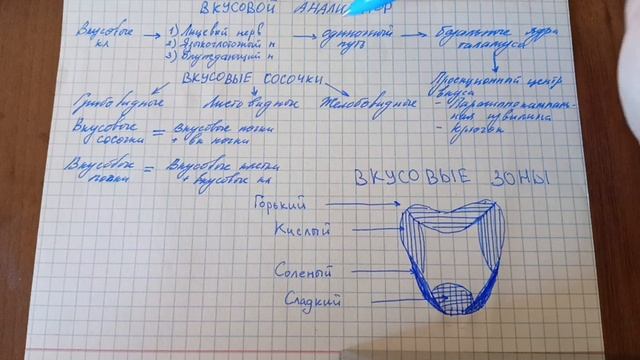 ВКУСОВОЙ АНАЛИЗАТОР
Вкусовые кл → 1) Лицевой нерв
2) Языкоглоточный н
3) Блуждающий н
→ одиночный путь → Базальные ядра таламуса
Проекционный центр вкуса
- Парагиппокампаль-
ная извилина
- крючок
ВКУСОВЫЕ СОСОЧКИ
Грибовидные Листовидные Желобовидные
Вкусовые сосочки = вкусовые почки
+ вк почки
Вкусовые почки = Вкусовые клетки
+ вкусовые кл
ВКУСОВЫЕ ЗОНЫ
Горький
Кислый
Соленый
Сладкий